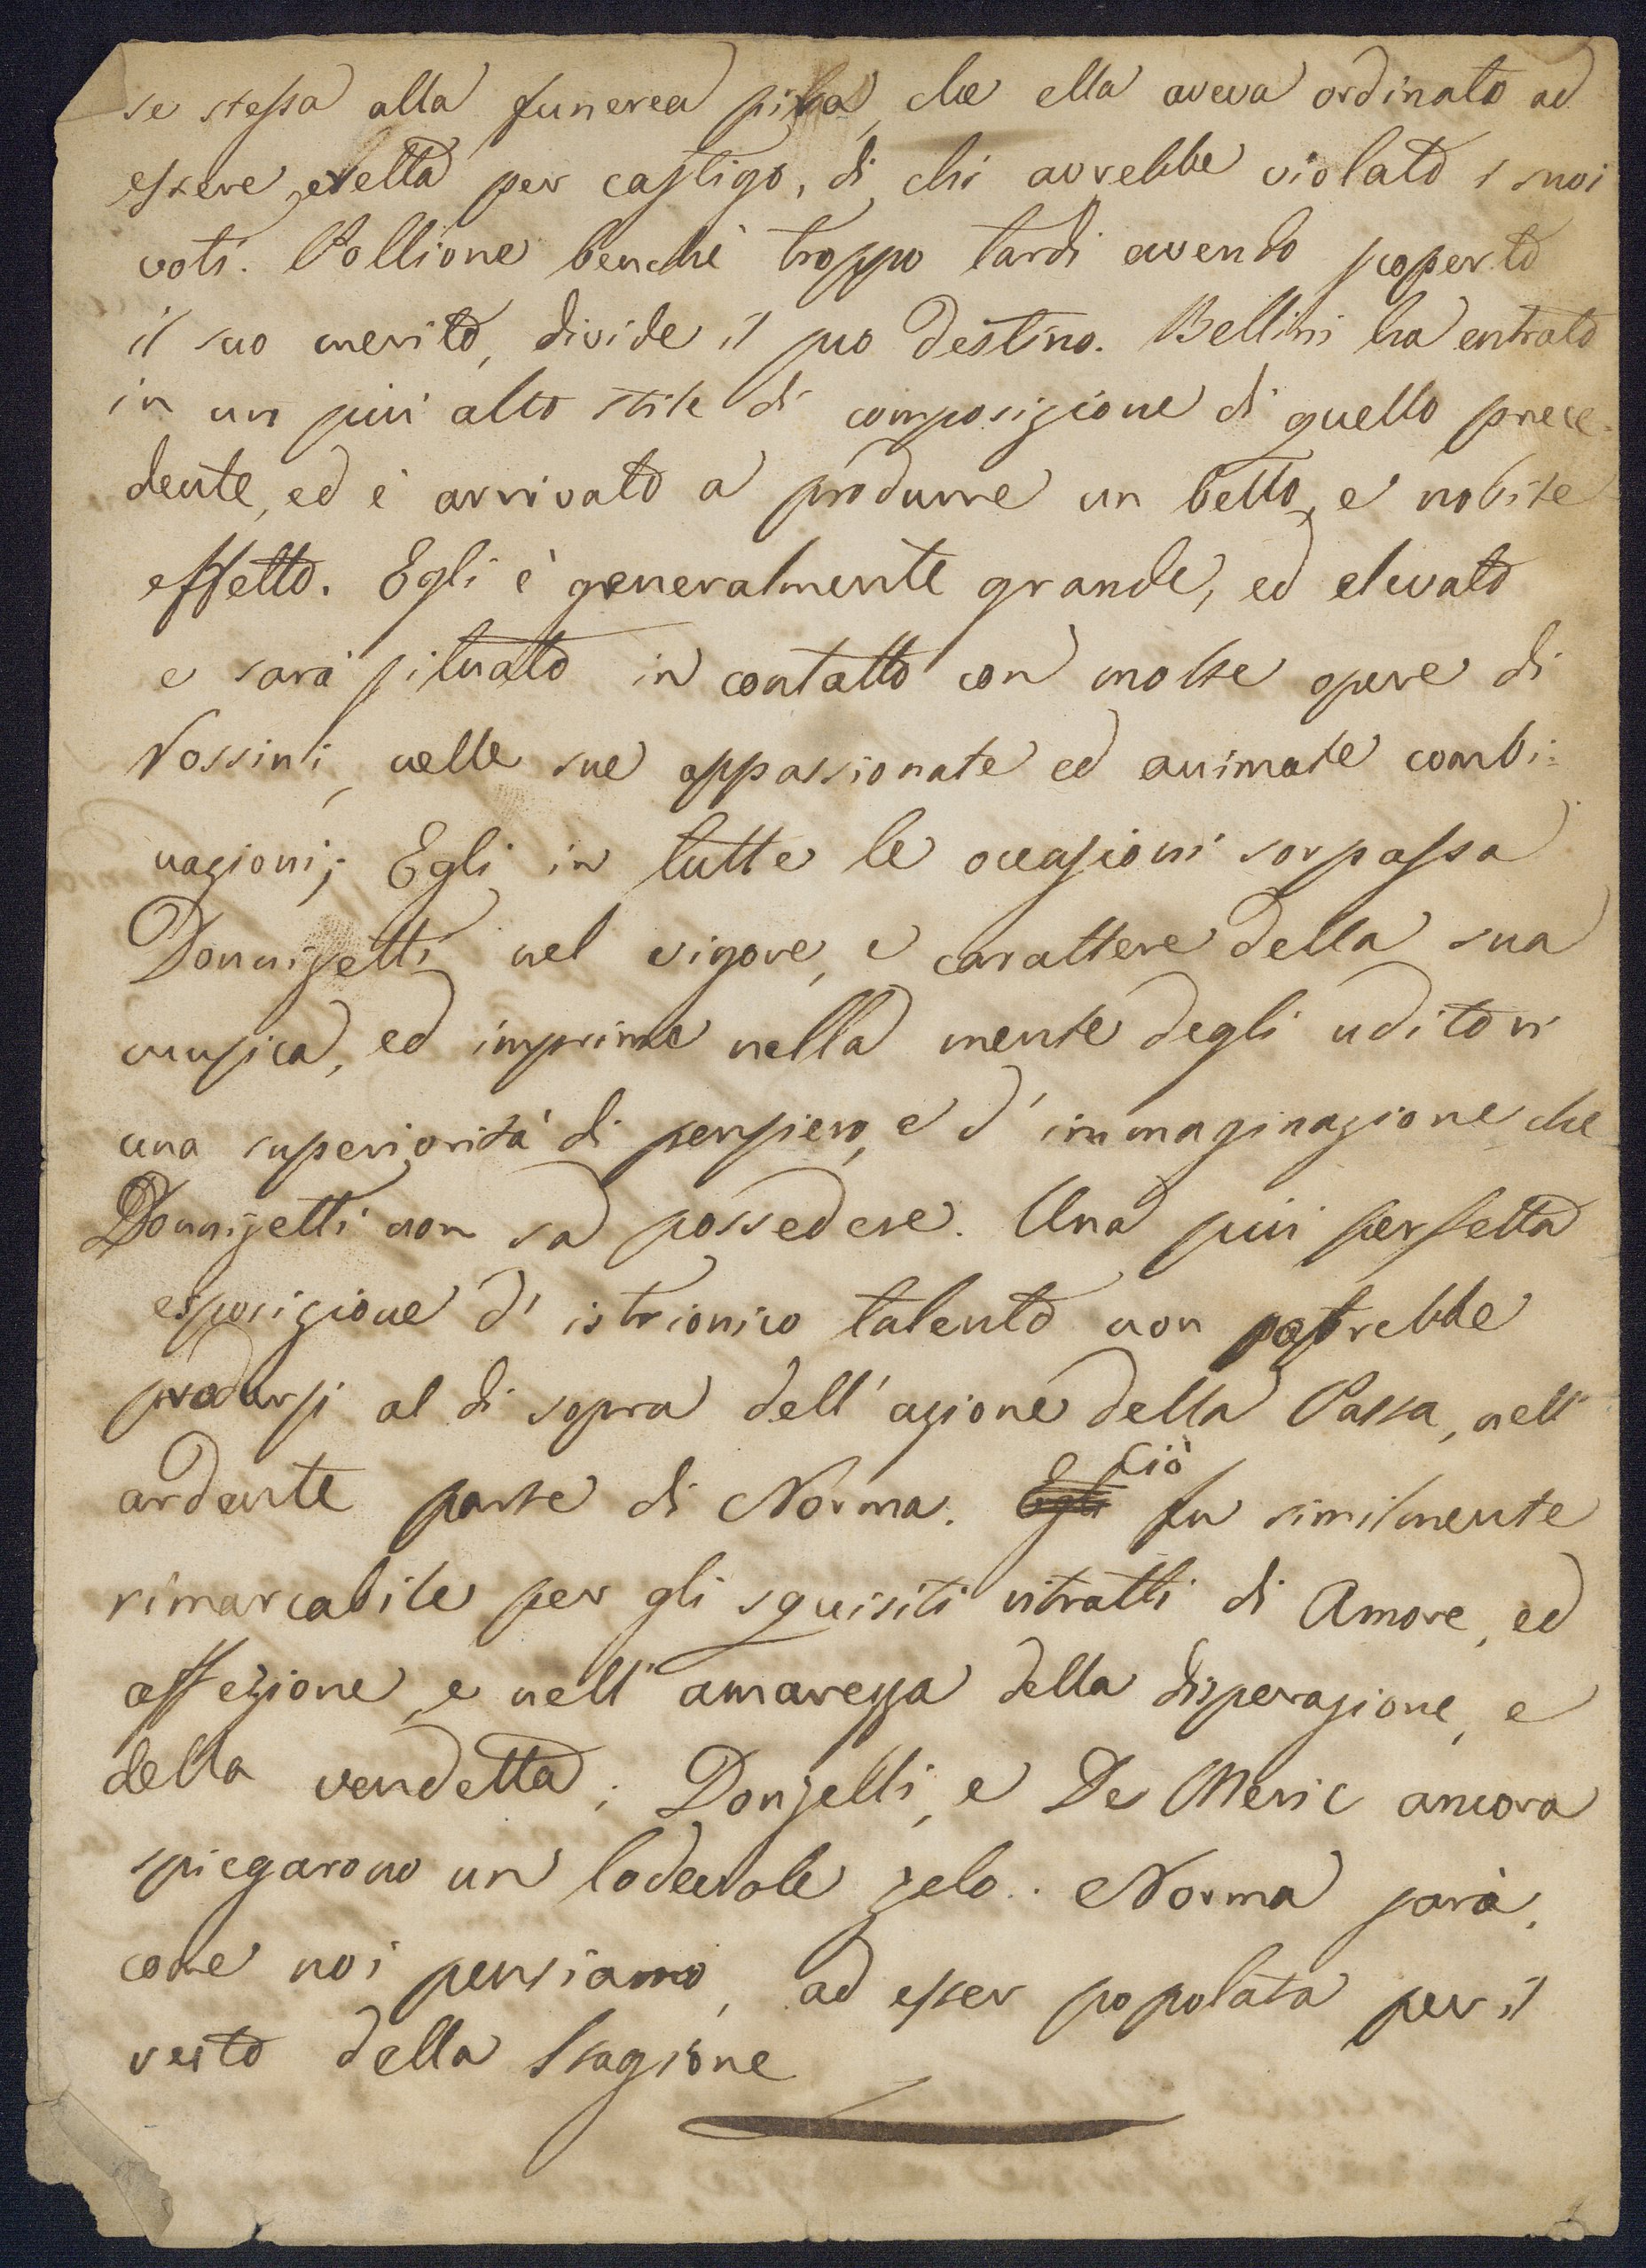 se stessa alla funerea pira, che ella aveva ordinato ad
essere eretta per castigo, di chi avrebbe violato i suoi
voti. Pollione benchè troppo tardi avendo scoperto
il suo merito, divide il suo destino. Bellini ha entrato
in un più alto stile di composizione di quello prece-
dente, ed è arrivato a produrre un bello, e nobile
effetto. Egli è generalmente grande, ed elevato
e sarà situato in contatto con molte opere di
Rossini, nelle sue appassionate ed animate combi:
nazioni; Egli in tutte le occasioni sorpassa
Donnizetti nel vigore, e carattere della sua
musica, ed imprime nella mente degli uditori
una superiorità di pensiero, e d' immaginazione che
Donnizetti non sa possedere. Una più perfetta
esposizione d' istrionico talento non potrebbe
prodursi al di sopra dell' azione della Pasta, nell'
ardente parte di Norma. Egli Ciò fu similmente
rimarcabile per gli squisiti ritratti di Amore, ed
affezione, e nell' amarezza della disperazione, e
della vendetta; Donzelli, e De Meric ancora
spiegarono un lodevole zelo. Norma sarà,
come noi pensiamo, ad esser popolata per il
resto della Stagione